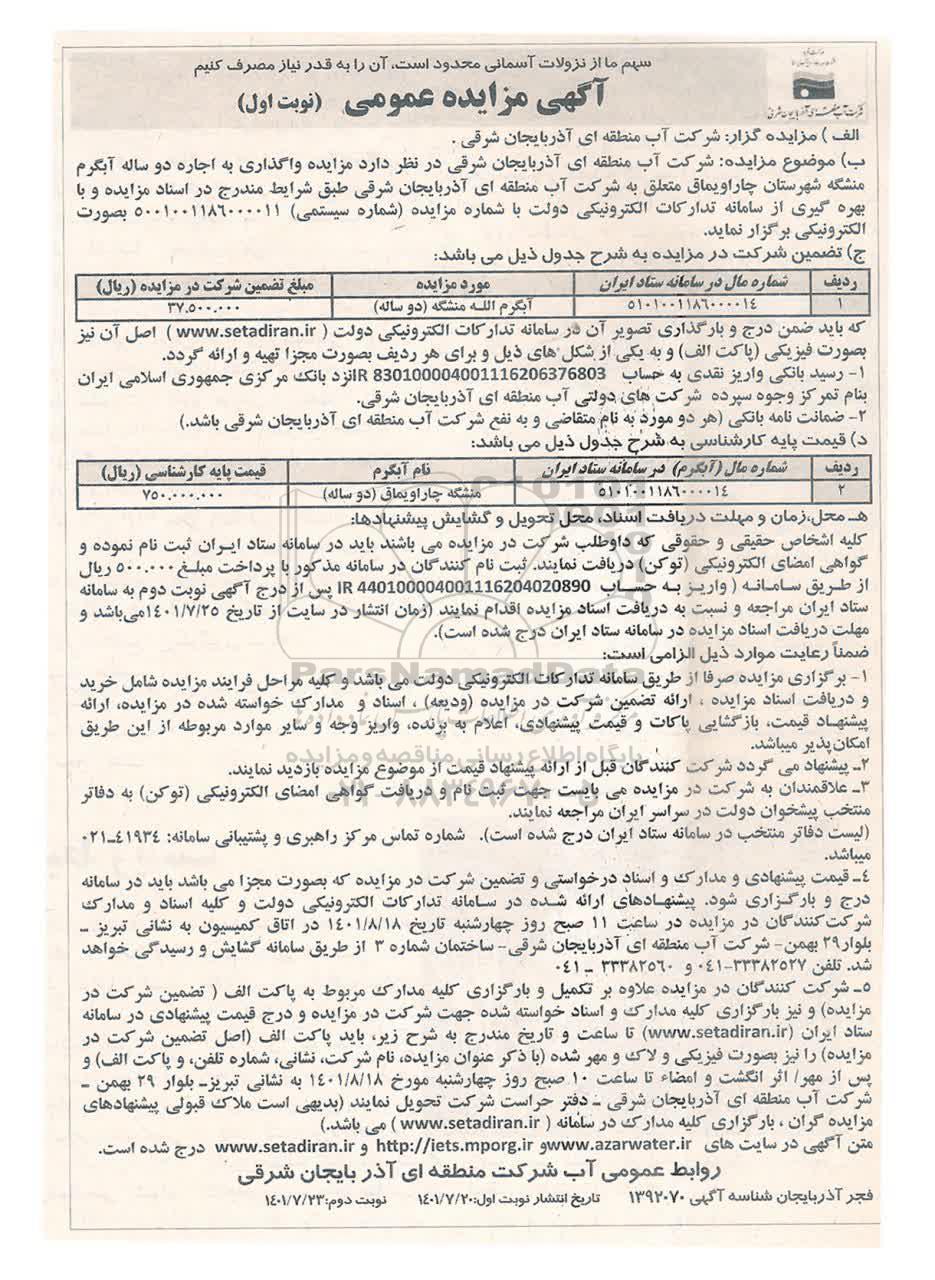 سهم ما از نزولات آسمانی محدود است، آن را به قدر نیاز مصرف کنیم
آگهی مزایده عمومی (نوبت اول)
شرکت آب منطقه ای آذربایجان شرقی
الف ) مزایده گزار: شرکت آب منطقه ای آذربایجان شرقی .
ب) موضوع مزایده: شرکت آب منطقه ای آذربایجان شرقی در نظر دارد مزایده واگذاری به اجاره دو ساله آبگرم
منشگه شهرستان چاراویماق متعلق به شرکت آب منطقه ای آذربایجان شرقی طبق شرایط مندرج در اسناد مزایده و با
بهره گیری از سامانه تدارکات الکترونیکی دولت با شماره مزایده (شماره سیستمی) ۵۰۰۱۰۰۱۱۸۶۰۰۰۰۱۱ بصورت
الکترونیکی برگزار نماید.
ج) تضمین شرکت در مزایده به شرح جدول ذیل می باشد:
ردیف شماره مال در سامانه ستاد ایران مورد مزایده مبلغ تضمین شرکت در مزایده (ریال)
۱ ۵۱۰۱۰۰۱۱۸۶۰۰۰۰۱۴ آبگرم الله منشگه (دو ساله) ۳۷.۵۰۰.۰۰۰
که باید ضمن درج و بارگذاری تصویر آن در سامانه تدارکات الکترونیکی دولت ( www.setadiran.ir ) اصل آن نیز
بصورت فیزیکی (پاکت الف) و به یکی از شکل های ذیل و برای هر ردیف بصورت مجزا تهیه و ارائه گردد.
۱- رسید بانکی واریز نقدی به حساب IR 830100004001116206376803نزد بانک مرکزی جمهوری اسلامی ایران
بنام تمرکز وجوه سپرده شرکت های دولتی آب منطقه ای آذربایجان شرقی.
۲- ضمانت نامه بانکی (هر دو مورد به نام متقاضی و به نفع شرکت آب منطقه ای آذربایجان شرقی باشد.)
د) قیمت پایه کارشناسی به شرح جدول ذیل می باشد:
ردیف شماره مال (آبگرم) در سامانه ستاد ایران نام آبگرم قیمت پایه کارشناسی (ریال)
۲ ۵۱۰۱۰۰۱۱۸۶۰۰۰۰۱۴ منشگه چاراویماق (دو ساله) ۷۵۰.۰۰۰.۰۰۰
هـ محل،زمان و مهلت دریافت اسناد، محل تحویل و گشایش پیشنهادها:
کلیه اشخاص حقیقی و حقوقی که داوطلب شرکت در مزایده می باشند باید در سامانه ستاد ایران ثبت نام نموده و
گواهی امضای الکترونیکی (توکن) دریافت نمایند. ثبت نام کنندگان در سامانه مذکور با پرداخت مبلغ۵۰۰.۰۰۰ ریال
از طریق سامانه ( واریز به حساب IR 440100004001116204020890 پس از درج آگهی نوبت دوم به سامانه
ستاد ایران مراجعه و نسبت به دریافت اسناد مزایده اقدام نمایند (زمان انتشار در سایت از تاریخ ۱۴۰۱/۷/۲۵می‌باشد و
مهلت دریافت اسناد مزایده در سامانه ستاد ایران درج شده است).
ضمناً رعایت موارد ذیل الزامی است:
ParsNamadData
۱- برگزاری مزایده صرفا از طریق سامانه تدارکات الکترونیکی دولت می باشد و کلیه مراحل فرایند مزایده شامل خرید
و دریافت اسناد مزایده ، ارائه تضمین شرکت در مزایده (ودیعه) ، اسناد و مدارک خواسته شده در مزایده، ارائه
پیشنهاد قیمت، بازگشایی پاکات و قیمت پیشنهادی، اعلام به برنده، واریز وجه و سایر موارد مربوطه از این طریق
امکان‌پذیر میباشد.
پایگاه اطلاع رسانی مناقصه و مزایده
۲ـ پیشنهاد می گردد شرکت کنندگان قبل از ارائه پیشنهاد قیمت از موضوع مزایده بازدید نمایند.
۳ـ علاقمندان به شرکت در مزایده می بایست جهت ثبت نام و دریافت گواهی امضای الکترونیکی (توکن) به دفاتر
منتخب پیشخوان دولت در سراسر ایران مراجعه نمایند.
(لیست دفاتر منتخب در سامانه ستاد ایران درج شده است). شماره تماس مرکز راهبری و پشتیبانی سامانه: ۴۱۹۳۴ـ۰۲۱
میباشد.
۴ـ قیمت پیشنهادی و مدارک و اسناد درخواستی و تضمین شرکت در مزایده که بصورت مجزا می باشد باید در سامانه
درج و بارگزاری شود. پیشنهادهای ارائه شده در سامانه تدارکات الکترونیکی دولت و کلیه اسناد و مدارک
شرکت‌کنندگان در مزایده در ساعت ۱۱ صبح روز چهارشنبه تاریخ ۱۴۰۱/۸/۱۸ در اتاق کمیسیون به نشانی تبریز ـ
بلوار۲۹ بهمن- شرکت آب منطقه ای آذربایجان شرقی- ساختمان شماره ۳ از طریق سامانه گشایش و رسیدگی خواهد
شد. تلفن ۳۳۳۸۲۵۲۷-۰۴۱ و ۳۳۳۸۲۵۶۰ ـ ۰۴۱
۵ـ شرکت کنندگان در مزایده علاوه بر تکمیل و بارگزاری کلیه مدارک مربوط به پاکت الف ( تضمین شرکت در
مزایده) و نیز بارگزاری کلیه مدارک و اسناد خواسته شده جهت شرکت در مزایده و درج قیمت پیشنهادی در سامانه
ستاد ایران (www.setadiran.ir) تا ساعت و تاریخ مندرج به شرح زیر، باید پاکت الف (اصل تضمین شرکت در
مزایده) را نیز بصورت فیزیکی و لاک و مهر شده (با ذکر عنوان مزایده، نام شرکت، نشانی، شماره تلفن، و پاکت الف) و
پس از مهر/ اثر انگشت و امضاء تا ساعت ۱۰ صبح روز چهارشنبه مورخ ۱۴۰۱/۸/۱۸ به نشانی تبریزـ بلوار ۲۹ بهمن ـ
شرکت آب منطقه ای آذربایجان شرقی ـ دفتر حراست شرکت تحویل نمایند (بدیهی است ملاک قبولی پیشنهادهای
مزایده گران ، بارگزاری کلیه مدارک در سامانه ( www.setadiran.ir ) می باشد.)
متن آگهی در سایت های www.azarwater.irو http://iets.mporg.ir و www.setadiran.ir درج شده است.
روابط عمومی آب شرکت منطقه ای آذربایجان شرقی
فجر آذربایجان شناسه آگهی ۱۳۹۲۰۷۰ تاریخ انتشار نوبت اول:۱۴۰۱/۷/۲۰ نوبت دوم:۱۴۰۱/۷/۲۳